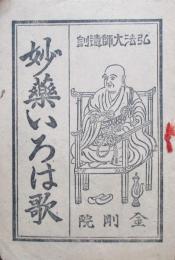 創造師大法弘
妙藥いろは歌
金剛院